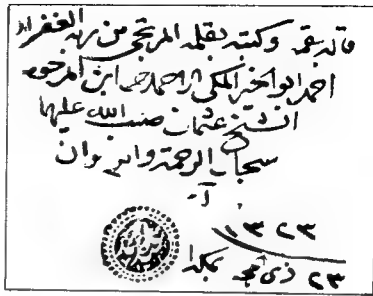 قاله بفمه وكتبه بقلمه المرتجي من ربه الغفران
احمد ابو الخير المكي بن احمد ابن المرحوم
الشيخ عثمان صب الله عليهما
سجال الرحمة والرضوان
آمين
١٣٢٣
٢٣ ذى الحجه بمكة